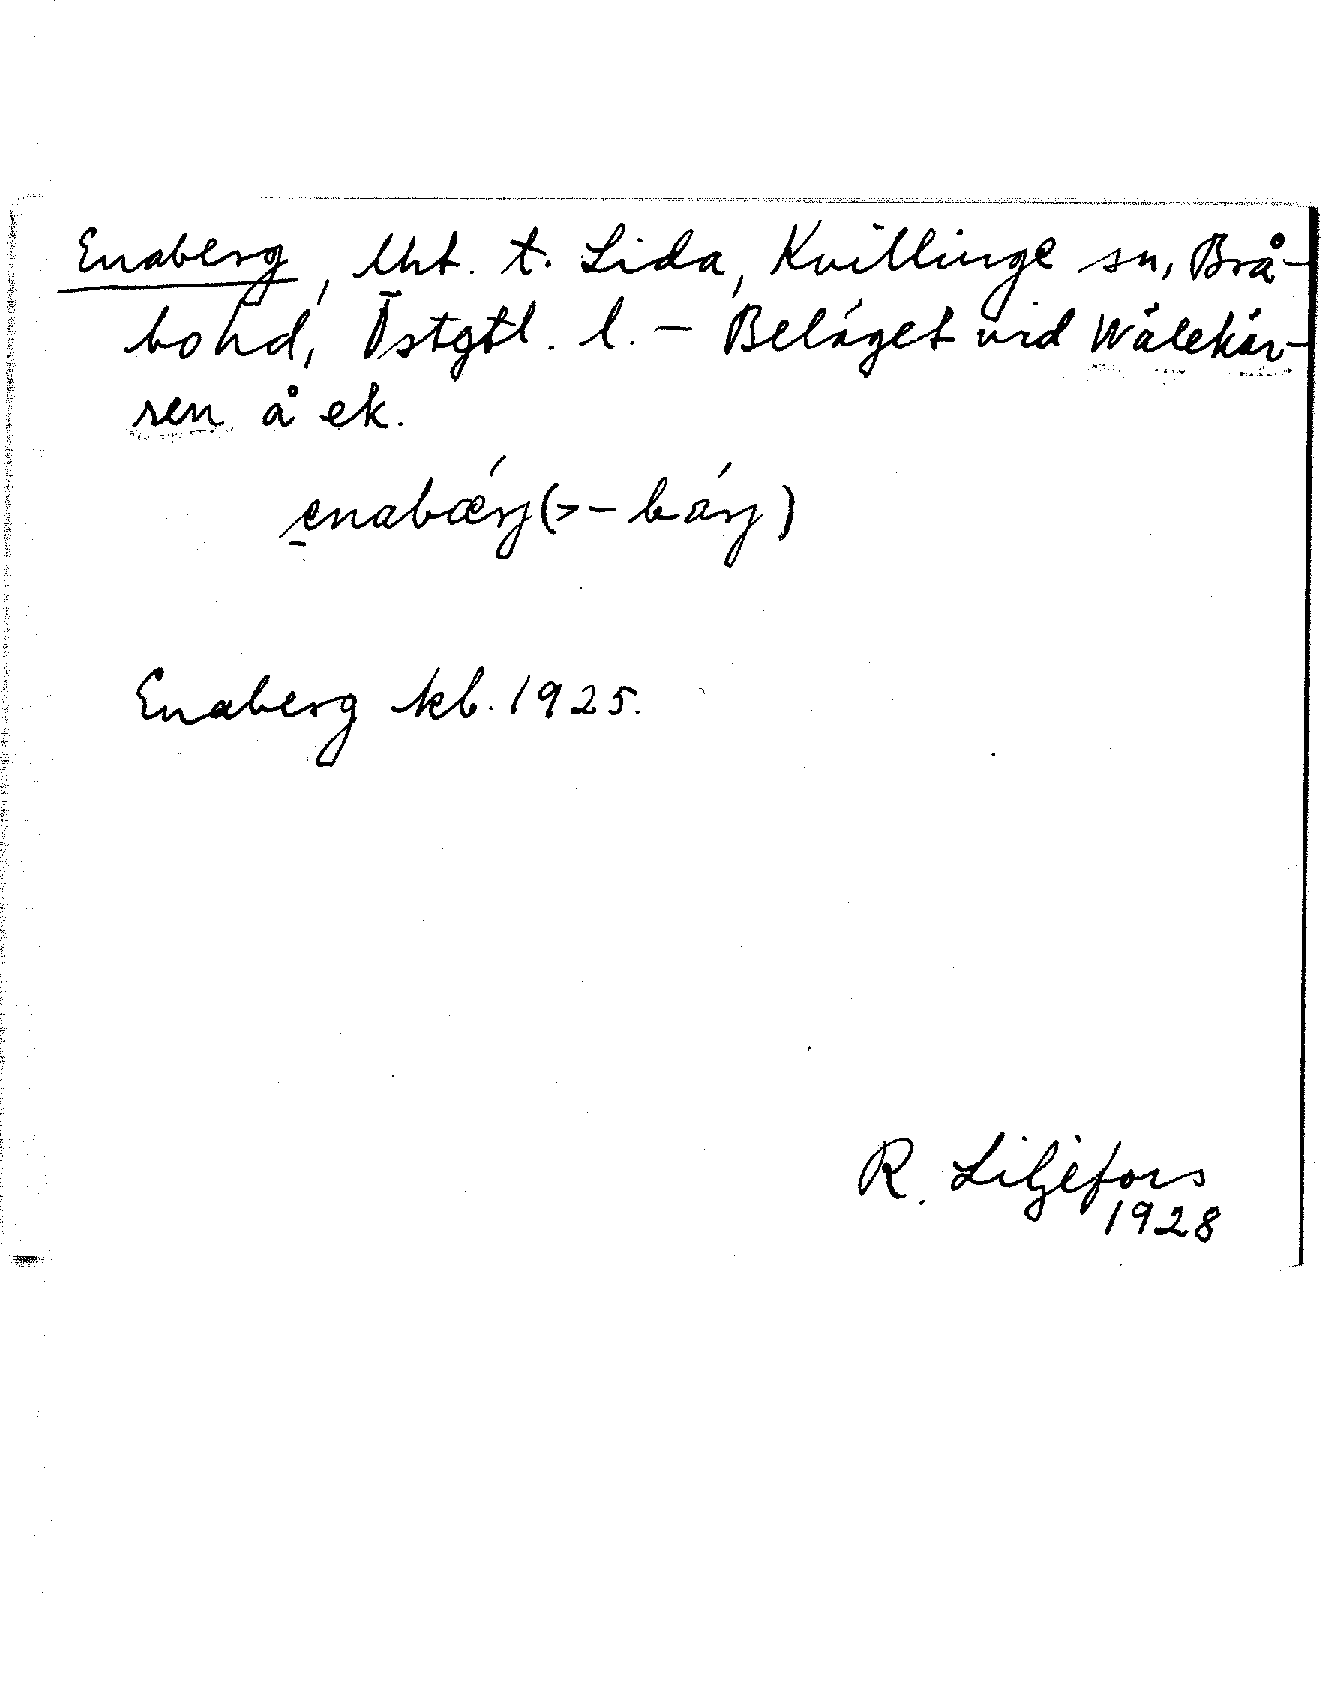 Enaberg, lht. t. Lida, Kvillinge sn, Brå-
bo hd, Östgtl. l. – Beläget vid Wålekär-
ren å ek.
enabærj (> - bárj)
Enaberg kb. 1925.
R. Liljefors
1928